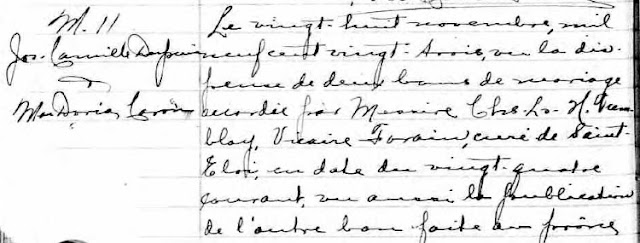 M. 11
Jos. Camille Dupuis
&
Mar. Doria Caron
Le vingt-huit novembre, mil
neuf cent vingt-trois, vu la dis-
pense de deux bans de mariage
accordée par Messire Chs. Ls. N. Trem-
blay, Vicaire Forain, curé de Saint-
Eloi, en date du vingt-quatre
courant, vu aussi la publication
de l'autre ban faite au prône